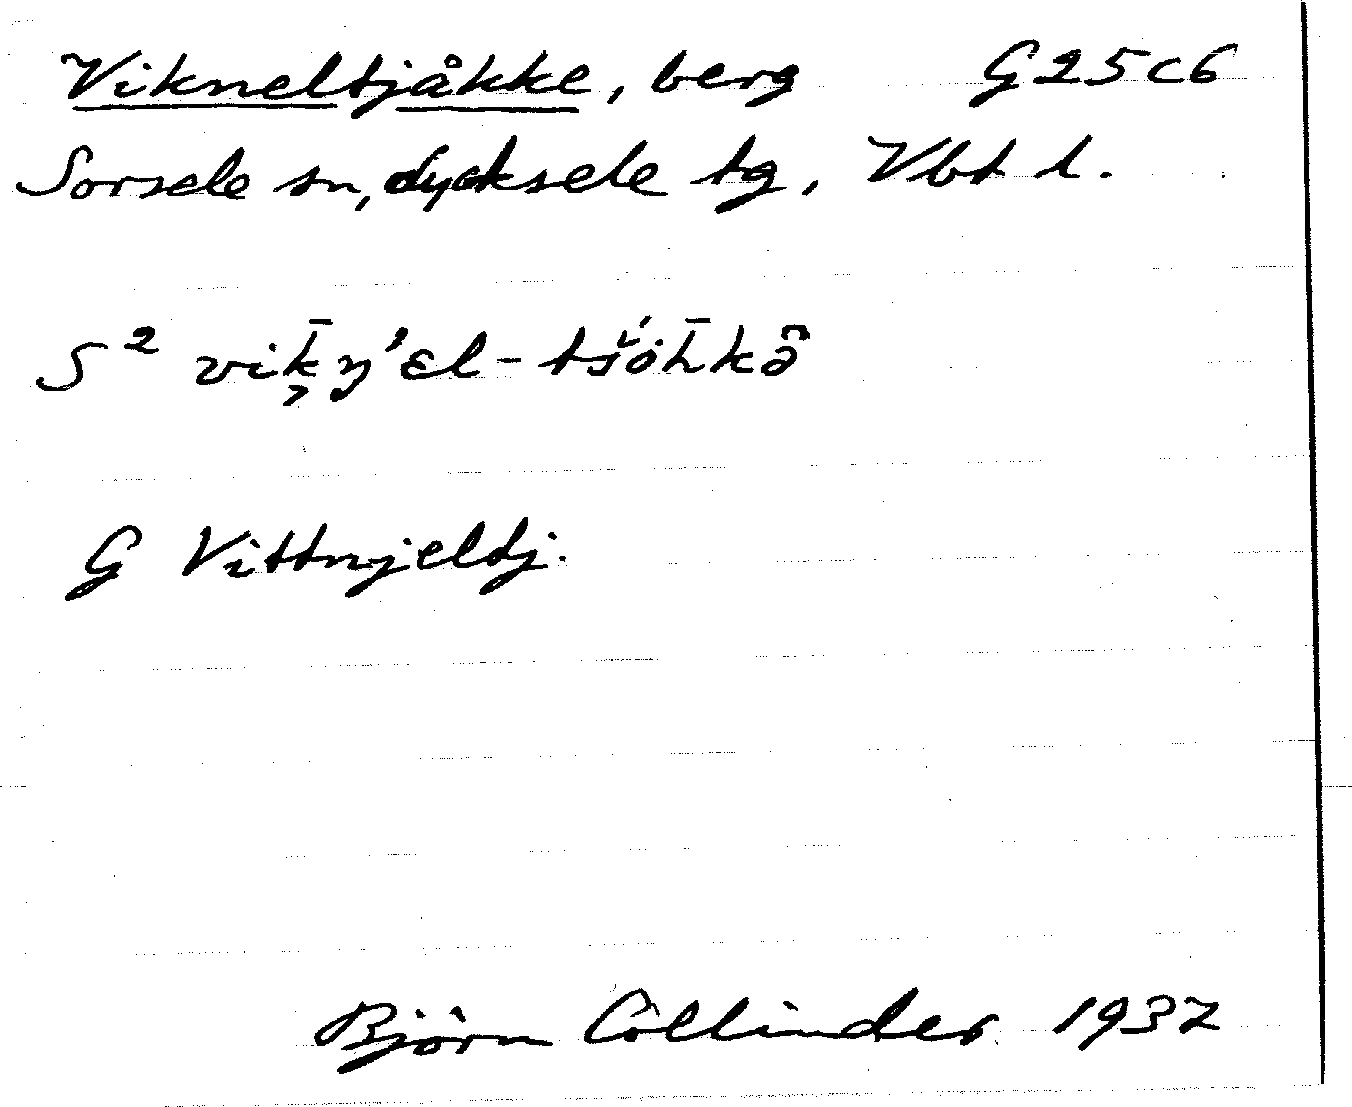 Vikneltjåkke, berg G25c6
Sorsele sn, Lycksele tg, Vbt l.
S² vik̦̄ŋ'εl-tš́óh̄kâ
G Vittnjeltj.
Björn Collinder 1937